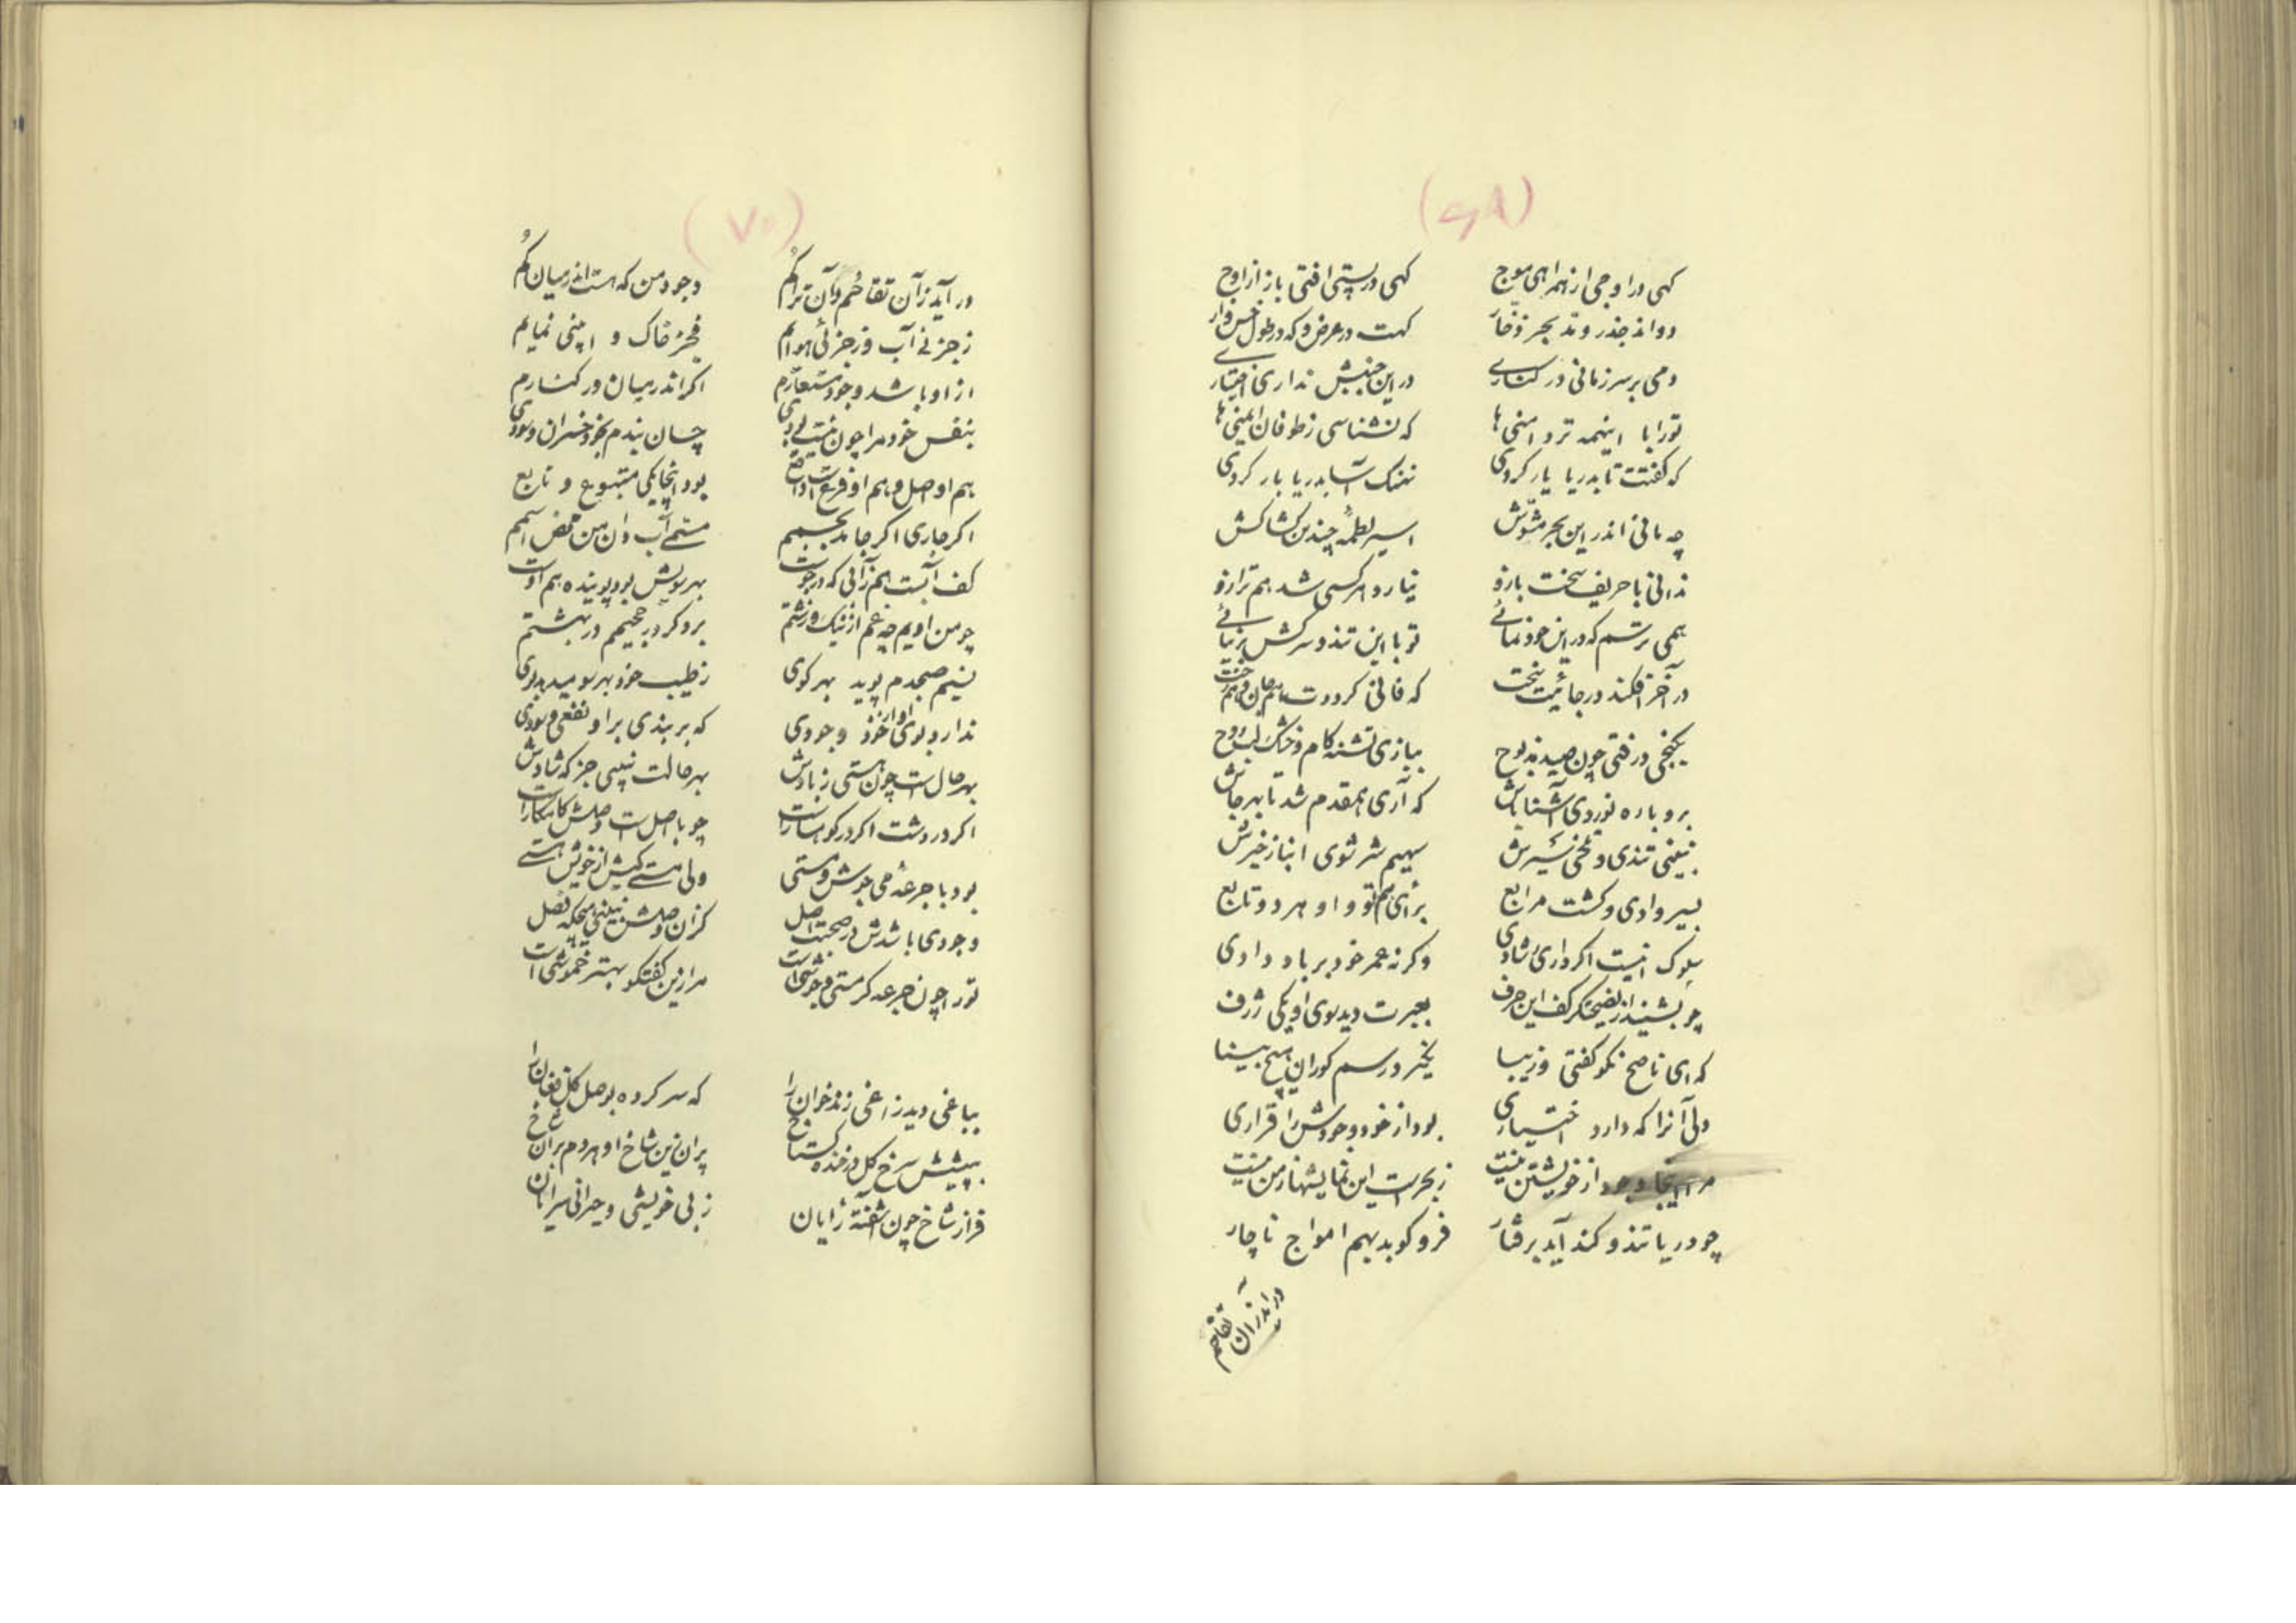 (۶۸)
کهی در اوجی از همراهی موج کهی در پستی افتی باز از اوج
دواند جذر و مد بحر زخار کهت در عرض و که در طول خس وار
دمی بر سر زمانی در کناری در این جنبش نداری اختیاری
تو را با اینهمه تر دامنی ها که نشناسی ز طوفان ایمنی ها
که کفتت تا بدریا یار کردی نهنک آسا بدریا بار کردی
چه مانی اندر این بحر مشوش اسیر لطمهٔ چندین کشاکش
ندانی با حریف سخت بازو نیارد هر کسی شد هم ترازو
همی ترسم که در این خود نمائی تو با این تند و سرکش بر نیائی
در آخر افکند در جائیت سخت که فانی کرددت هم جان و هم رخت
بکنجی در فتی چون صید مذبوح ببازی تشنه کام و خشک لب روح
برو باره نوردی آشنا باش که آری همقدم شد تا بهر جاش
نبینی تندی و تلخی ز سیرش سهیم شر شوی انباز خیرش
بسیر وادی و کشت مرابع برأی هم تو و او هر دو تابع
سلوک اینست اکر داری رشادی وکرنه عمر خود بر باد دادی
چو بشنید از نصیحتکر کف این حرف بعبرت دید سوی او یکی ژرف
که ای ناصح نکو کفتی و زیبا نکیرد رسم کوران هیچ بینا
ولی آنرا که دارد اختیاری بود از خود وجودش را قراری
مرا اینجا وجود از خویشتن نیست ز بحر است این نمایشها ز من نیست
چو دریا تند و کند آید برفتار فرو کوبد بهم امواج ناچار
در آید زان تقاحم
(۷۰)
در آید زآن تقاحُم وآن تراکُم وجود من که هست اندر میان کُم
ز جزئی آب و ز جزئی هوایم بجز خاک و نمایم
از او باشد وجود مستعارم اکر اندر میان در کنارم
بنفس خود مرا چون نیست بودی چسان بندم بخود خسران و سودی
هم او اصل و هم او فرع است در واقع بود اینجا یکی متبوع و تابع
اکر جاری اکر جامد بجسمم مسمی آب دان من محض اسمم
کف آبست هم زآنی که در جوست بهر سویش بود پوینده هم اوست
چو من اویم چه غم از نیک و زشتم برد کر در جحیمم در بهشتم
نسیم صبحدم پوید بهر کوی ز طیب خود بهر سو میدهد بوی
ندارد بوی او از خود وجودی که بر بندی بر او نفعی و سودی
بهر حال است چون هستی ز بادش بهر حالت نبینی جز که شادش
اکر در دشت اکر در کوهسار است چو با اصل است وصلش کامکار است
بود با جرعهٔ می جوش و مستی ولی هستی کیش از خویش هستی
وجودی باشدش در صحبت اصل کز آن وصلش نبینی هیچکه فصل
تو را چون جرعه کر مستی و جوشی است مرا زین کفتکو بهتر خموشی است
بباغی دید زاغی زندخوان را که سر کرده بوصل کل فغان را
به پیشش سرخ کل در خنده کستاخ پران زین شاخ او هر دم بر آن شاخ
فراز شاخ چون آشفته رایان ز بی خویشی و حیرانی سرایان